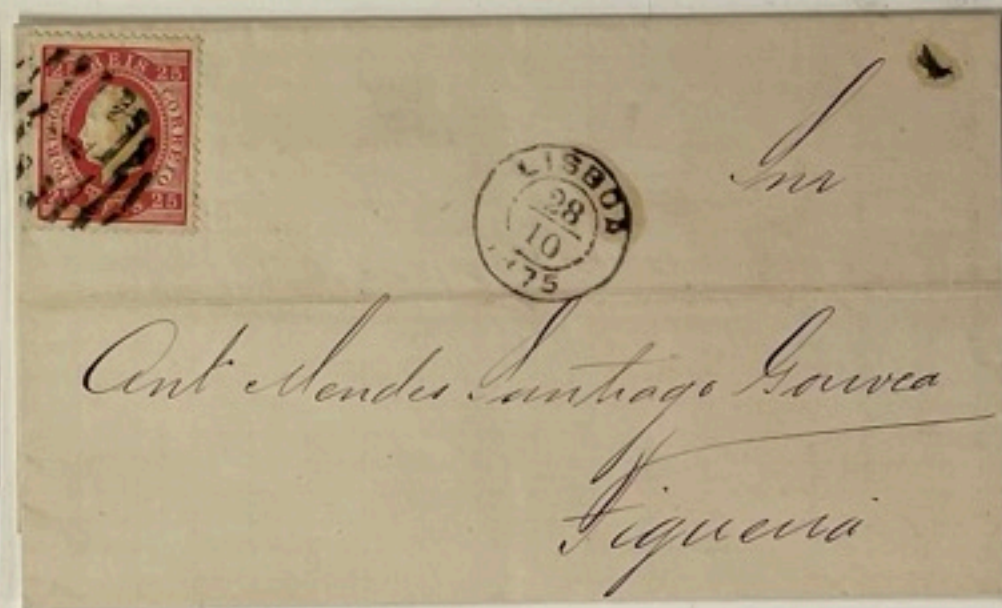 25 REIS 25
PORTUGAL CORREIO
25 25
25
LISBOA
28
10
75
Snr
Ant Mendes Santiago Gouvea
Figueira